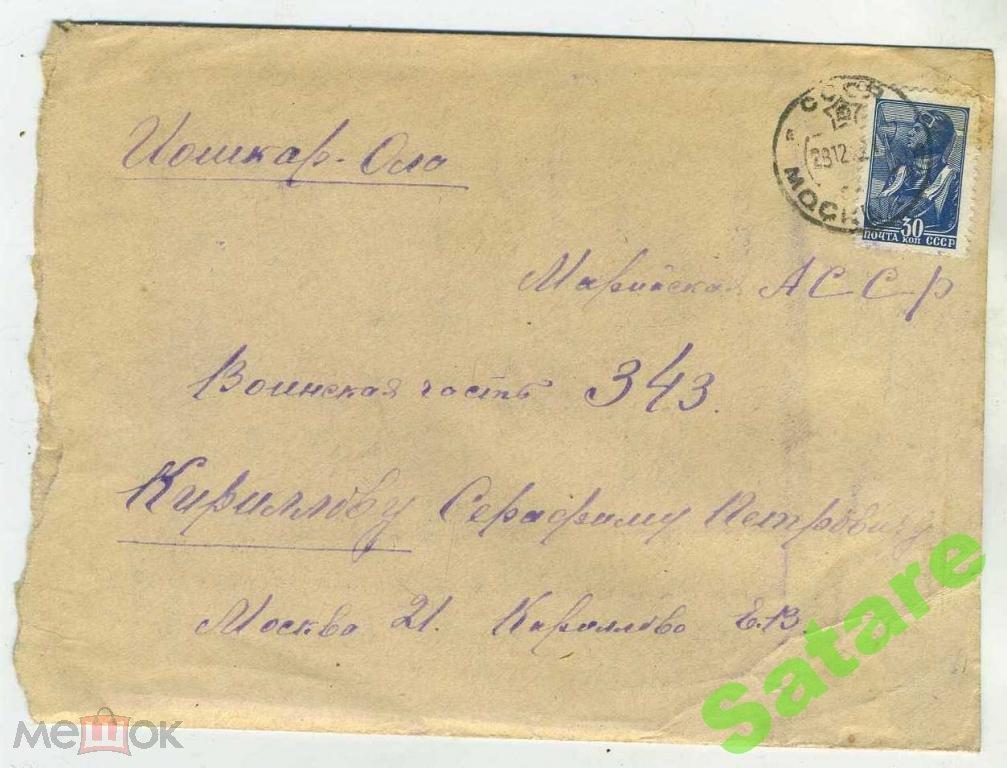 СССР
28 12
МОСК
30
ПОЧТА КОП СССР
Иошкар-Ола
Марийская АССР
Воинская часть 343.
Кириллову Серафиму Петровичу
Москва 21. Кириллова Е.В.
Satare
мешок